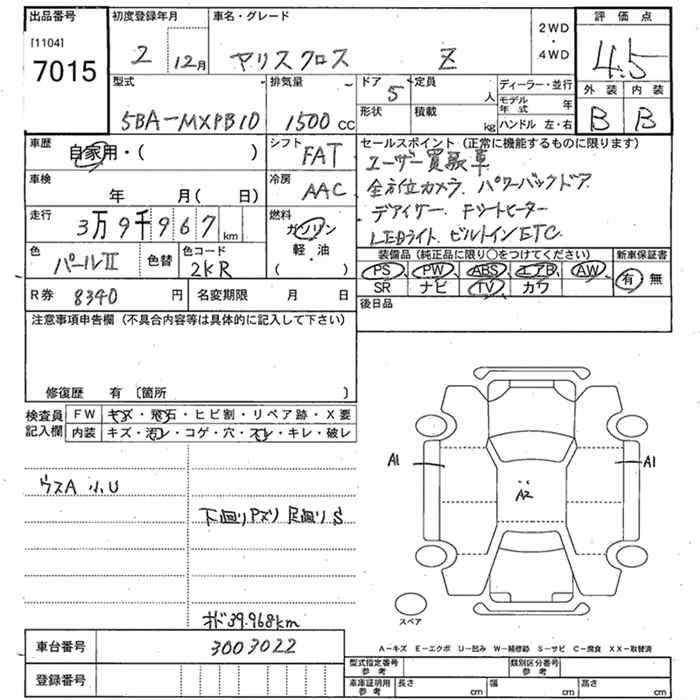 出品番号 初度登録年月 車名・グレード 2WD・4WD 評価点
[1104]
7015 2 12月 ヤリスクロス Z 4.5
型式 排気量 ドア 5 定員 人 ディーラー・並行 外装 内装
5BA-MXPB10 1500 cc 形状 積載 kg モデル年式 年 B B
ハンドル 左・右
車歴 自家用・( ) シフト FAT セールスポイント (正常に機能するものに限ります)
ユーザー買取車
車検 年 月(日) 冷房 AAC 全方位カメラ、パワーバックドア
走行 3万9千967km 燃料 ガソリン デアイサー Fシートヒーター
軽・油 LEDライト、ビルトインETC
( )
色 パールII 色替 色コード 2KR 装備品(純正品に限り○をつけてください) 新車保証書
PS PW ABS エアB AW 有 無
SR ナビ TV カワ
R券 8340 円 名変期限 月 日 後日品
注意事項申告欄(不具合内容等は具体的に記入して下さい)
修復歴 有 〔箇所 〕
検査員記入欄 FW キズ・飛石・ヒビ割・リペア跡・X要
内装 キズ・汚レ・コゲ・穴・スレ・キレ・破レ
A1 A1
ウスA 小U A2
下廻りPズリ 足廻りS
スペア
オド39.968km
A-キズ E-エクボ U-凹み W-補修跡 S-サビ C-腐食 XX-取替済
車台番号 3003022
型式指定番号 参考 類別区分番号 参考
登録番号 車庫証明用 参考 長さ cm 幅 cm 高さ cm